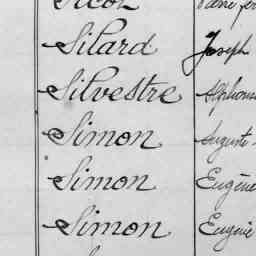 Silard Joseph
Silvestre Alphons
Simon Auguste
Simon Eugène
Simon Eugène